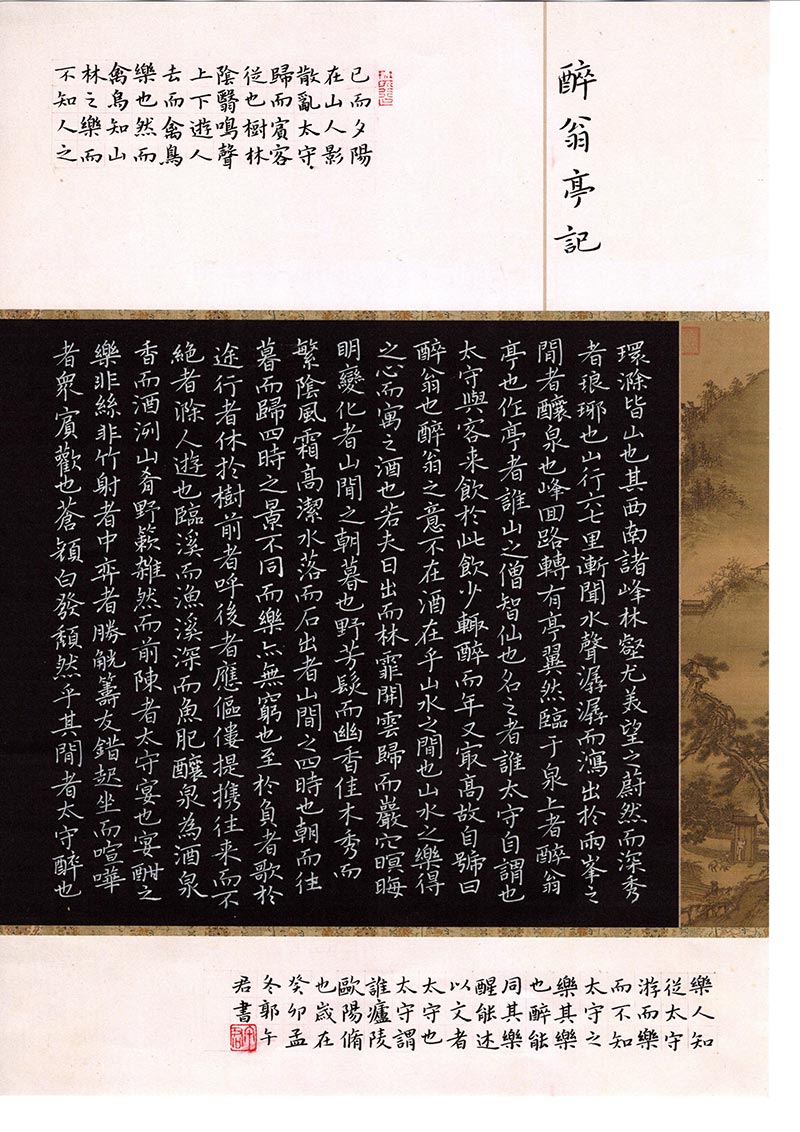 醉翁亭記
環滁皆山也其西南諸峰林壑尤美望之蔚然而深秀
者琅琊也山行六七里漸聞水聲潺潺而瀉出於兩峯之
間者釀泉也峰回路轉有亭翼然臨于泉上者醉翁
亭也作亭者誰山之僧智仙也名之者誰太守自謂也
太守與客来飲於此飲少輒醉而年又冣高故自號曰
醉翁也醉翁之意不在酒在乎山水之間也山水之樂得
之心而寓之酒也若夫日出而林霏開雲歸而巖穴暝晦
明變化者山間之朝暮也野芳髮而幽香佳木秀而
繁陰風霜高潔水落而石出者山間之四時也朝而往
暮而歸四時之景不同而樂亦無窮也至於負者歌於
途行者休於樹前者呼後者應傴僂提携往来而不
絶者滁人遊也臨溪而漁溪深而魚肥釀泉為酒泉
香而酒洌山肴野蔌雜然而前陳者太守宴也宴酣之
樂非絲非竹射者中弈者勝觥籌交錯起坐而喧嘩
者眾賓歡也蒼顏白發頹然乎其間者太守醉也
已而夕陽
在山人影
散亂太守
歸而賓客
從也樹林
陰翳鳴聲
上下遊人
去而禽鳥
樂也然而
禽鳥知山
林之樂而
不知人之
樂人知
從太守
游而樂
而不知
太守之
樂其樂
也醉能
同其樂
醒能述
以文者
太守也
太守謂
誰廬陵
歐陽脩
也歲在
癸卯孟
冬郭午
君書